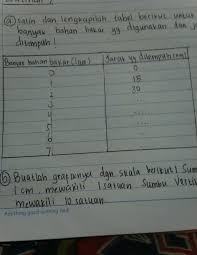 a) salin dan lengkapilah tabel berikut untuk
banyak bahan bakar yg digunakan dan j
ditempuh!
Banyak bahan bakar (liter) Jarak yg ditempuh (km)
0 0
1 15
2 30
3 ....
4 .....
5 ....
6
7
b) Buatlah grafiknya dgn skala berikut! Sum
1 cm, mewakili 1 satuan Sumbu Verti
mewakili 10 satuan.